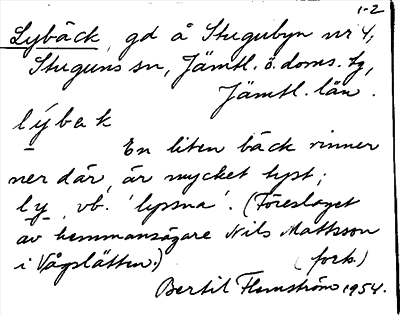 1-2
Lybäck, gd å Stugubyn nr 4,
Stuguns sn, Jämtl. ö. doms. tg,
Jämtl. län.
lýbak
En liten bäck rinner
ner där, är mycket tyst;
ly, vb. 'lyssna'. (Föreslaget
av hemmansägare Nils Mattsson
i Vågslätten.) (fork.)
Bertil Flemström 1954.